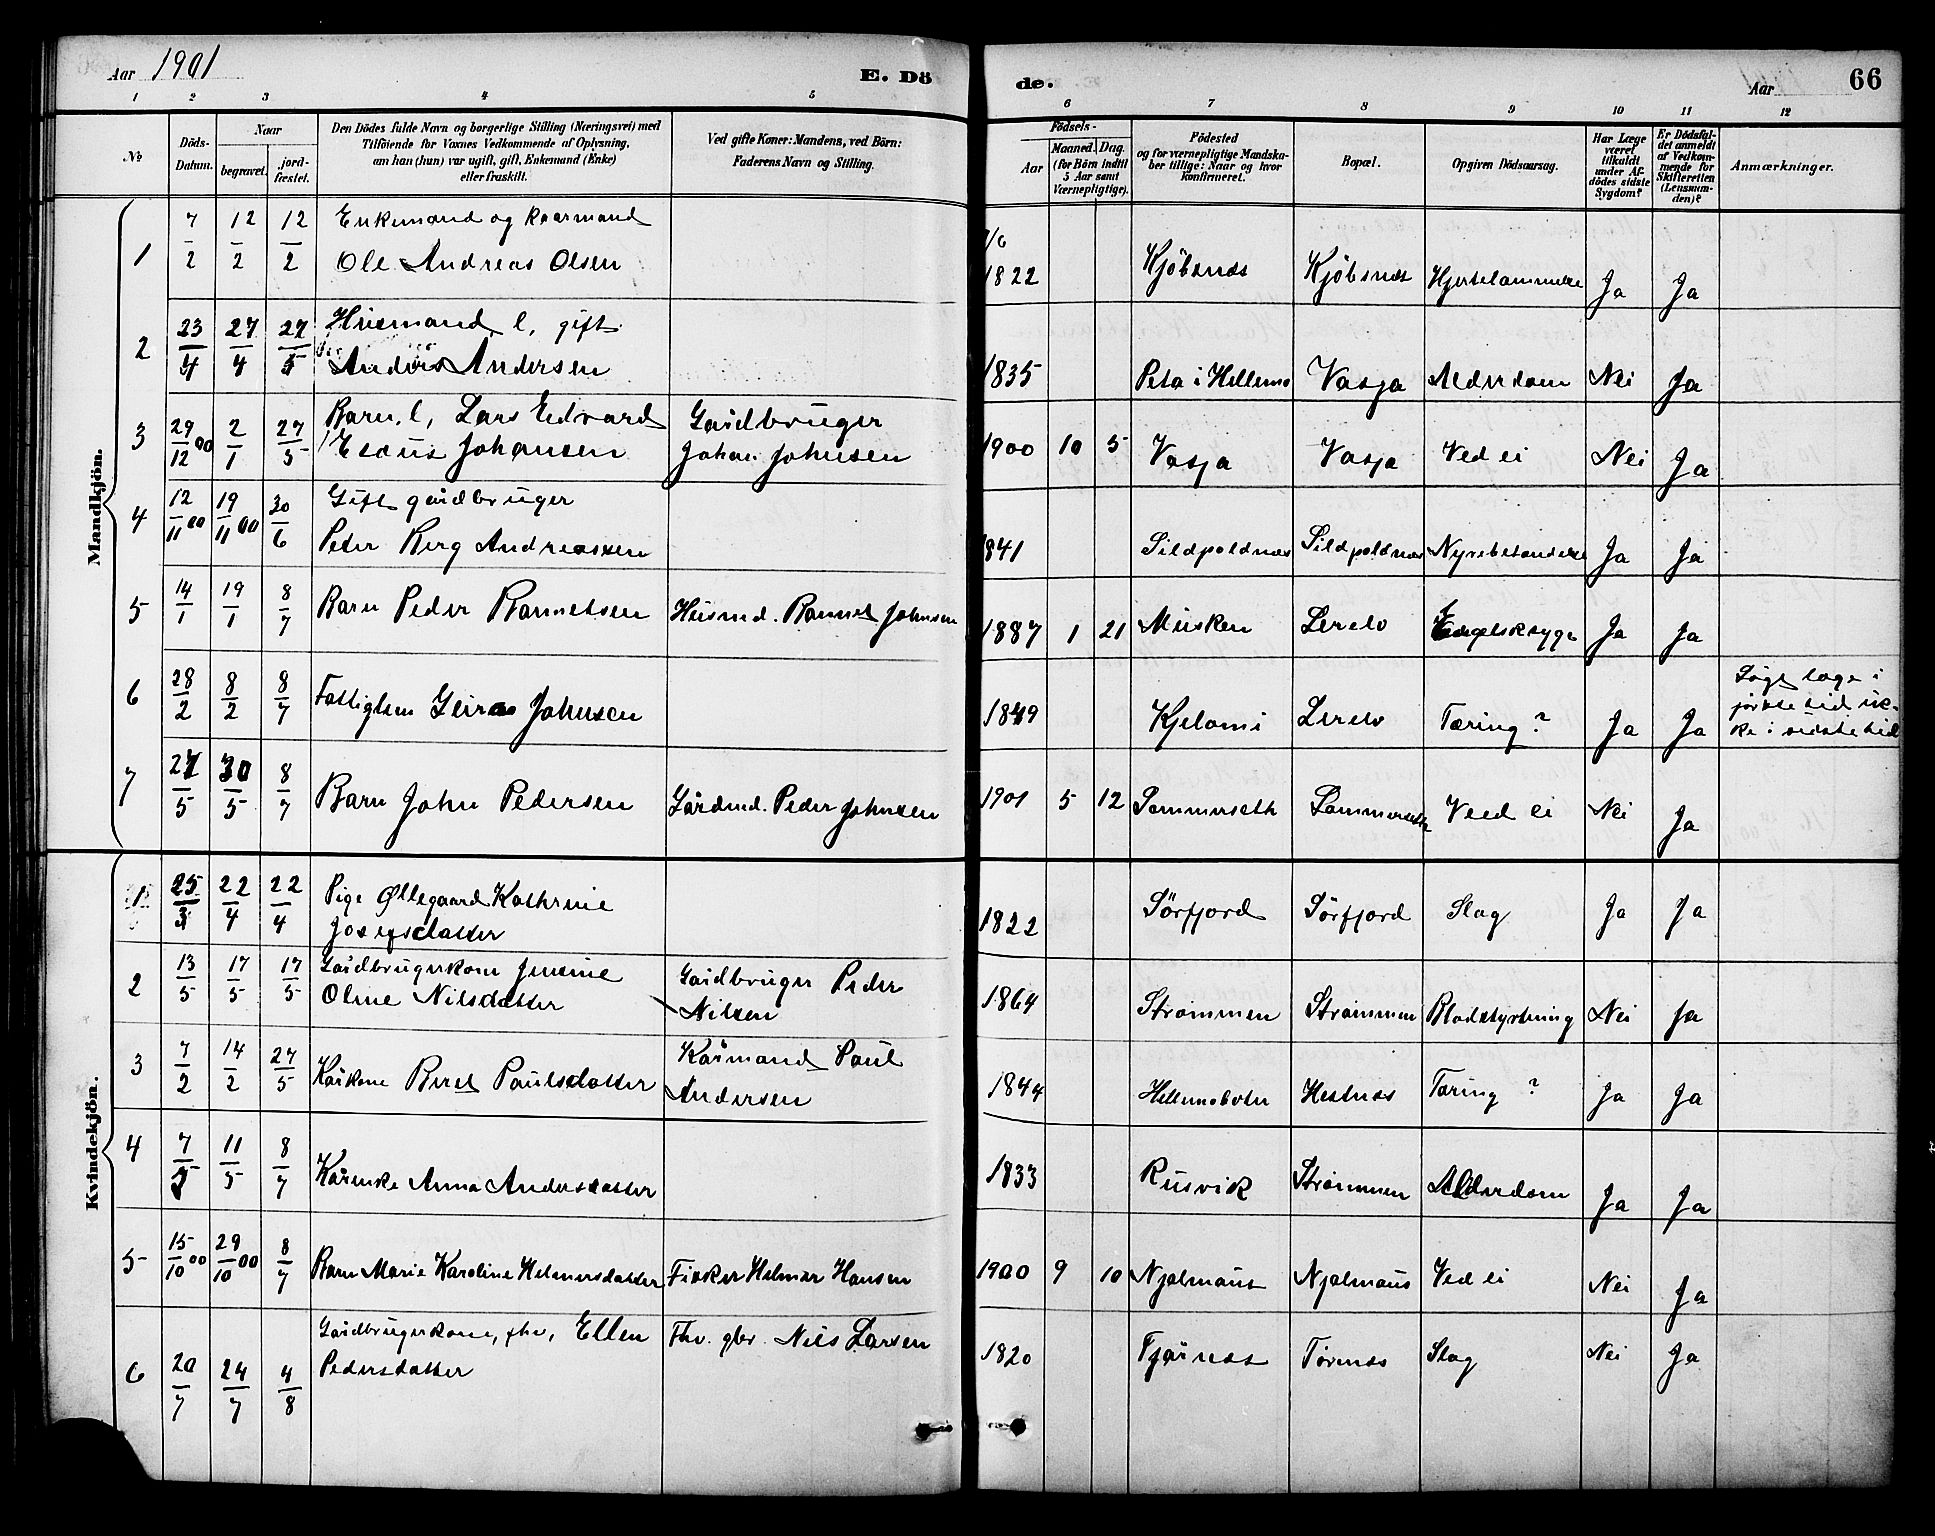 Aar 1901
E. Dö
de.
Aar
66
1 2 3 4 5 6 7 8 9 10 11 12
No
Döds-Datum.
Naar
begravet.
jord-fæstet.
Den Dödes fulde Navn og borgerlige Stilling (Næringsvei) med
Tilföiende for Voxnes Vedkommende af Oplysning,
om han (hun) var ugift, gift, Enkemand (Enke)
eller fraskilt.
Ved gifte Koner: Mandens, ved Börn:
Faderens Navn og Stilling.
Födsels-
Aar
Maaned. Dag.
(for Börn indtil
5 Aar samt
Værnepligtige).
Födested
og for værnepligtige Mandska-
ber tillige: Naar og hvor
konfirmeret.
Bopæl.
Opgiven Dödsaarsag.
Har Læge
været
tilkaldt
under Af-
dödes sidste
Sygdom?
Er Dödsfal-
det anmeldt
af Vedkom-
mende for
Skifteretten
(Lensman-
den)?
Anmærkninger.
Mandkjön.
1 7/2 12/2 12/2 Enkemand og kaarmand
Ole Andreas Olsen
1/6 1822 Kjöbsnes Kjöbsnes Hjertelammelse Ja Ja
2 23/4 27/4 27/5 Husmand l, gift
Anders Andersen
1835 Peta i Hellemo Vasja Alderdom Nei Ja
3 29/12 00 2/1 27/5 Barn, l, Lars Edvard
Esaus Johansen
Gaidbruger
Johan Johnsen
1900 10 5 Vasja Vasja Ved ei Nei Ja
4 12/11 00 19/11 00 30/6 Gift gaidbruger
Peder Berg Andreassen
1841 Sildpoldnes Sildpoldnes Nyrebetændelse Ja Ja
5 14/1 19/1 8/7 Barn Peder Bannetsen Husmd. Bannet Johnsen
1887 1 21 Musken Lerelv Engelsksyge Ja Ja
6 28/2 8/2 8/7 Fattiglem Johnsen
1849 Kjelomi Lerelv Tæring? Ja Ja Søgt læge i
første tid ik-
ke i sidste tid
7 27/5 30/5 8/7 Barn John Pedersen Gårdmd. Peder Johnsen
1901 5 12 Sommerseth Sommerseth Veed ei Nei Ja
Kvindekjön.
1 25/3 22/4 22/4 Pige Øllegaard Kathrine
Josefsdatter
1822 Sörfjord Sörfjord Slag Ja Ja
2 13/5 17/5 17/5 Gaidbrugerkone Jensine
Oline Nilsdatter
Gaidbruger Peder
Nilsen
1864 Strømmen Strømmen Blodstyrtning Nei Ja
3 7/2 14/2 27/5 Kårkone Beret Paulsdatter
Kårmand Paul
Andersen
1844 Hellemobotn Hestnes Tæring? Ja Ja
4 7/5 11/5 8/7 Kårenke Anna Andersdatter
1833 Rusvik Strømmen Alderdom Ja Ja
5 15/10 00 29/10 00 8/7 Barn Marie Karoline Helmersdatter Fisker Helmer Hansen
1900 9 10 Njalmaus Njalmaus Ved ei Nei Ja
6 20/7 24/7 4/8 Gaidbrugerkone, fhv, Ellen
Pedersdatter
Fhv. gbr. Nils Larsen
1820 Tjårnes Tørnes Slag Nei Ja